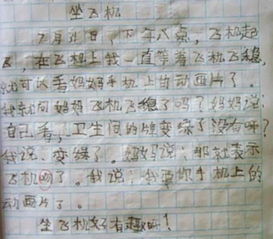 坐飞机
7月月日,下午八点,飞机起
飞,在飞机上我一直等着飞机飞稳,
就可以看妈妈手机上的动画片了.
我就问妈妈飞机飞稳了吗?妈妈说:
自己看,卫生间的牌变绿了没有呀?
我说:变绿了.妈妈说:那就表示
飞机了.我说:我要你手机上的
动画片了.
坐飞机好有趣呀!